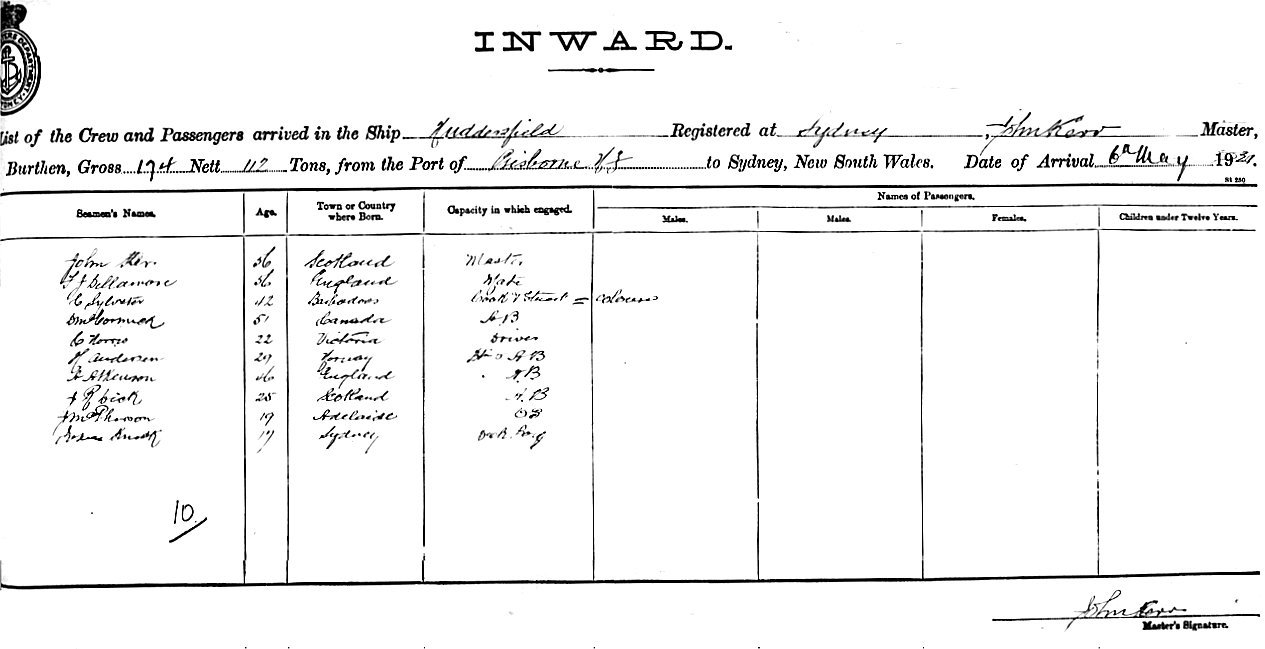 INWARD.
List of the Crew and Passengers arrived in the Ship Huddersfield Registered at Sydney, John Kerr Master,
Burthen, Gross 174 Nett 112 Tons, from the Port of Gisborne NZ to Sydney, New South Wales. Date of Arrival 6th May 1921.
Seamen's Names. Age. Town or Country where Born. Capacity in which engaged. Names of Passengers.
Males. Males. Females. Children under Twelve Years.
John Kerr 56 Scotland Master
56 England Mate
C Sylvester 42 Barbadoes Cook & Steward = coloured
D McCormick 51 Canada AB
C Norris 22 Victoria Driver
H Andersen 29 Norway AB
A Atkinson 46 England AB
25 Scotland AB
J McPherson 19 Adelaide OS
19 Sydney
10.
John Kerr
Master's Signature.